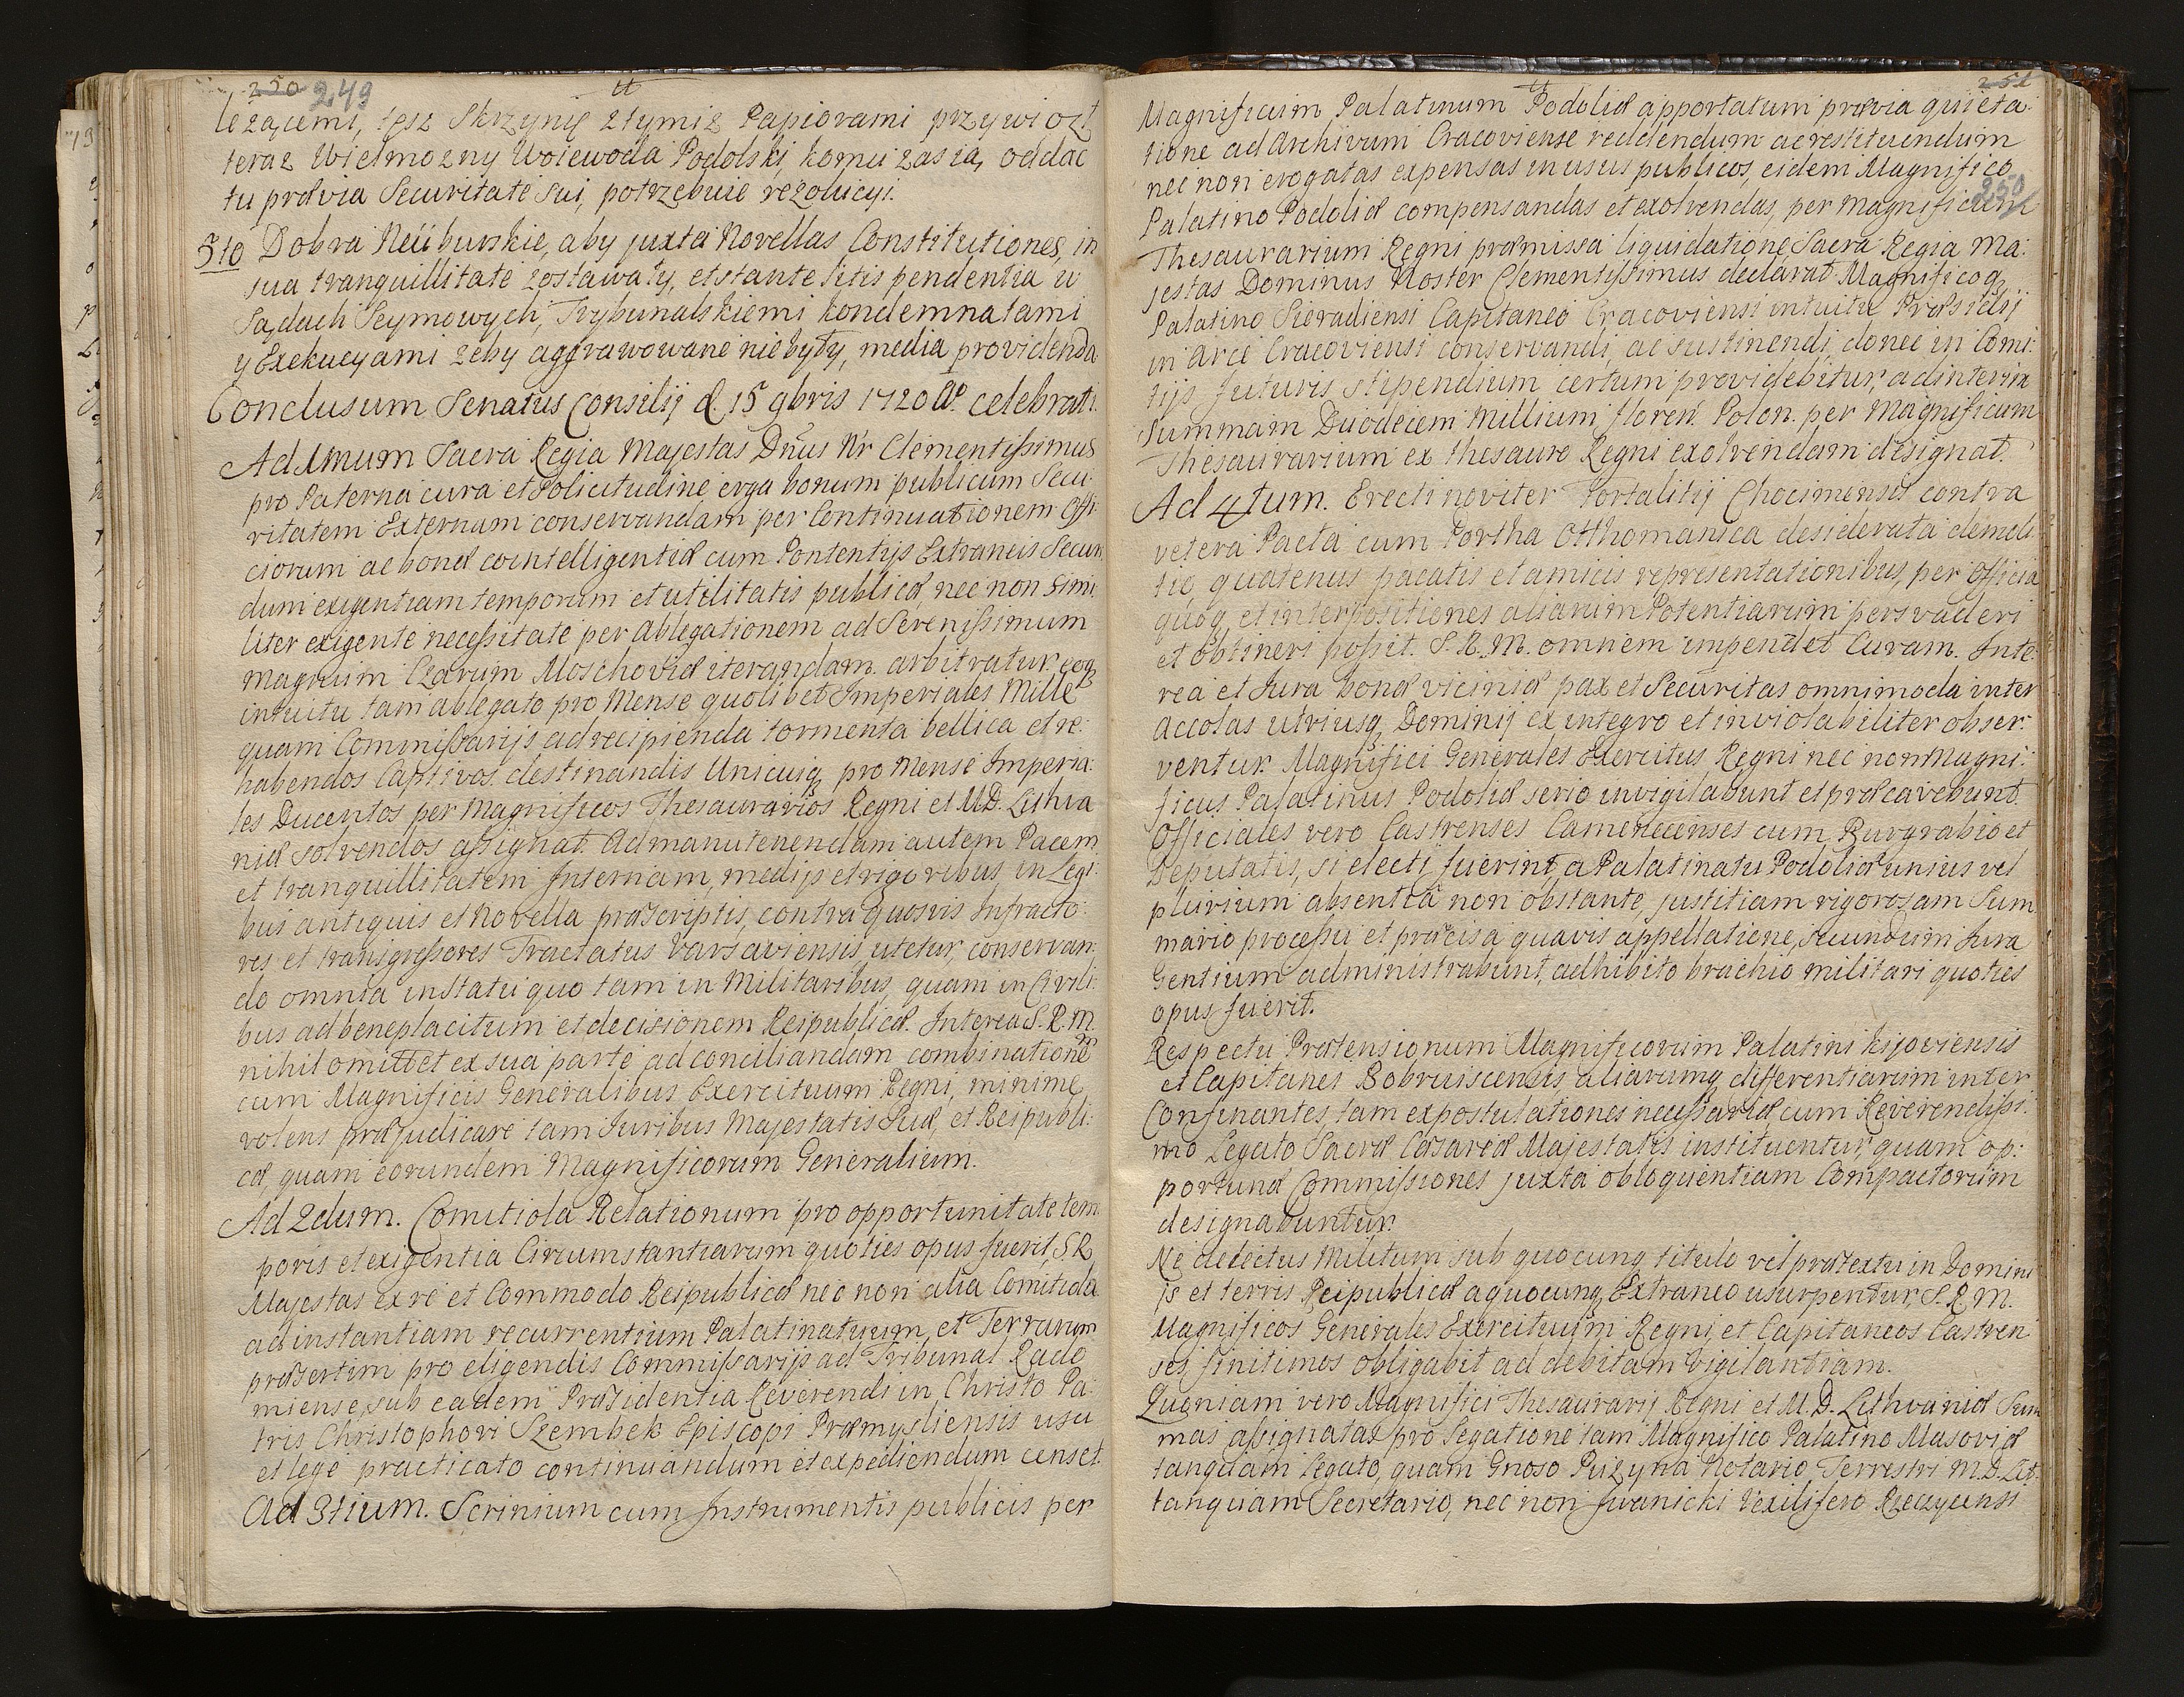 250 249
leżącemi, tesz Skrzynię ztymiż Papiorami przywiozł
teraz Wielmożny Woiewoda Podolski, komu zasię, oddac
tu prævia Securitate sui, potrzebuie rezolucyi.
5to Dobra Neüburskie, aby juxta Novellas Constitutiones, in
sua tranquillitate zostawały, et stante litis pendentia w
Sądach Seymowych, Trybunalskiemi kondemnatami
y Exekucyami żeby aggrawowane niebyły, media providenda
Conclusum Senatus Consilij d. 15 9bris 1720 Aō. celebrati.
Ad 1mum Sacra Regia Majestas Dnūs Nr̄ Clementissimus
pro Paterna cura et Solicitudine erga bonum publicum Secu
ritatem Externam conservandam per Continuationem Offi
ciorum ac bonæ cointelligentiæ cum Pontentijs Extraneis Secun
dum exigentiam temporum et utilitatis publicæ, nec non simi,
liter exigente necessitate per Ablegationem ad Serenissimum
Magnum Czarum Moschoviæ iterandam. arbitratur eoq,
intuitu tam ablegato pro Mense quolibet Imperiales Mille
quam Commissarijs ad recipienda tormenta bellica et re:
habendos Captivos destinandis Unicuiq, pro Mense Imperia:
les Ducentos per Magnificos Thesaurarios Regni et M.D. Lithva
niæ solvendos assignat. Ad manutenendam autem Pacem
et tranquillitatem Internam, medijs et rigoribus in Legi:
bus antiquis et Novella præscriptis, contra quosvis Infracto:
res et transgressores Tractatus Varsaviensis, utetur, conservan:
do omnia in Statu quo tam in Militaribus, quam in Civili:
bus ad beneplacitum et decisionem Reipublicæ. Interea S. R. M.
nihil omittet ex sua parte ad conciliandam combinationē
cum Magnificis Generalibus Exercituum Regni, minime
volens præjudicare tam Juribus Majestatis Suæ, et Reipubli:
cæ, quam eorundem Magnificorum Generalium.
Ad 2dum. Comitiola Relationum pro opportunitate tem
poris et exigentia Circumstantiarum quoties opus fuerit, S. R.
Majestas ex re et Commodo Reipublicæ nec non alia Comitiola
ad instantiam recurrentium Palatinatuum, et Terrarum
præsertim pro eligendis Commissarijs ad Tribunal Rado
miense, sub eadem Præsidentia Reverendi in Christo Pa:
tris Christophori Szembek Episcopi Præmysliensis usu
et lege practicato continuandum et expediendum censet.
Ad 3tium. Scrinium cum Instrumentis publicis per
251
Magnificum Palatinum Podoliæ apportatum prævia quieta:
tione ad Archivum Cracoviense reddendum ac restituendum
nec non erogatas expensas in usus publicos, eidem Magnifico
250
Palatino Podoliæ compensandas et exolvendas, per Magnificum
Thesaurarium Regni præmissa liquidatione Sacra Regia Ma:
jestas Dominus Noster Clementissimus declarat. Magnificoq,
Palatino Sieradiensi Capitaneo Cracoviensi intuitu Præsidij
in Arce Cracoviensi conservandi, ac sustinendi, donec in Comi:
tijs futuris Stipendium certum providebitur, ad interim
Summam Duodecem Millium floren. Polon. per Magnificum
Thesaurarium ex Thesauro Regni exolvendam designat.
Ad 4tum. Erecti noviter Fortalitij Chocimensis contra
vetera Pacta cum Portha Otthomanica desiderata demoli
tio, quatenus pacatis et amicis representationibus, per Officia
quoq, et interpositiones aliarum Potentiarum persvaderi
et obtineri possit. S. R. M. omnem impendet Curam. Inte:
rea et Jura bonæ viciniæ pax et Securitas omnimoda inter
Accolas utriusq, Dominij ex integro et inviolabiliter obser:
ventur. Magnifici Generales Exercitus Regni nec non Magni:
ficus Palatinus Podoliæ serio invigilabunt et præcavebunt.
Officiales vero Castrenses Camenecenses cum Burgrabio et
Deputatis, si electi fuerint, a Palatinatu Podoliæ unius vel
plurium absentia non obstante, justitiam rigorosam Sum
mario processu et præcisa quavis appellatione, secundum Jura
Gentium administrabunt, adhibito brachio militari quoties
opus fuerit.
Respectu Prætensionum Magnificorum Palatini Kijoviensis
et Capitanei Bobruiscensis aliarumq, differentiarum inter
Confinantes, tam expostulationes necessariæ, cum Reverendissi:
mo Legato Sacræ Cæsareæ Majestatis instituentur, quam op:
portunæ Commissiones juxta obloquentiam Compactorum
designabuntur.
Ne delectus Militum sub quocunq, titulo vel prætextu in Domini
is et terris Reipublicæ a quocunq, Extraneo usurpentur, S. R. M.
Magnificos Generales Exercituum Regni, et Capitaneos Castren
ses, finitimos obligabit ad debitam vigilantiam.
Quoniam vero Magnifici Thesaurarij Regni et M. D. Lithvaniæ Sum
mas assignatas pro Legatione tam Magnifico Palatino Masoviæ
tanquam Legato, quam Gnoso Puzyna Notario Terrestri M. D. Lit.
tanquam Secretario, nec non Iwanicki Vexilifero Rzeczycensi